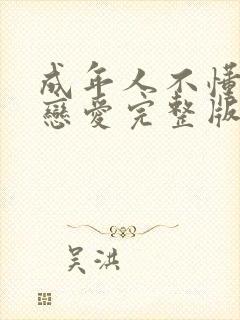 成年人不懂
戀愛完整版
吴洪